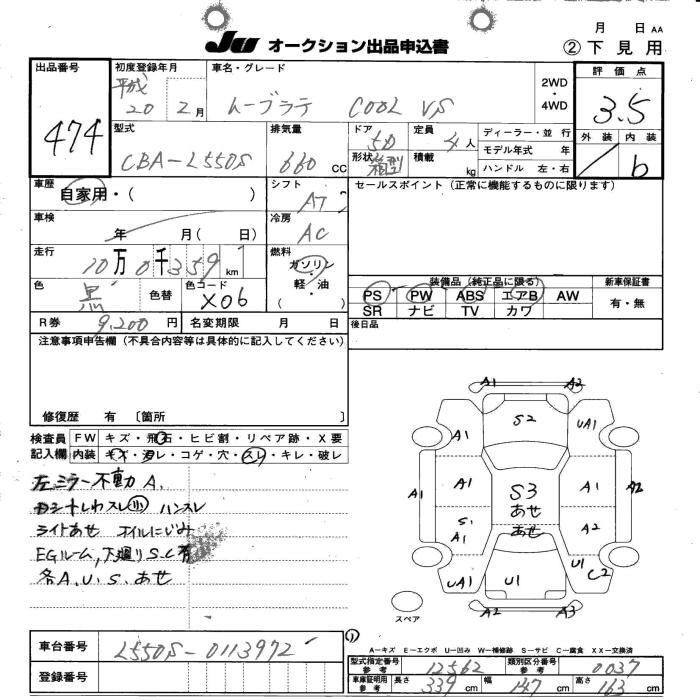 月 日 AA
JU オークション出品申込書
② 下見用
出品番号
474
初度登録年月
平成
20 2月
車名・グレード
ムーブラテ COOL VS
2WD
・
4WD
評価点
3.5
外装 内装
b
型式
CBA-L550S
排気量
660 CC
ドア 5D
形状 箱型
定員 4人
積載 kg
ディーラー・並行
モデル年式 年
ハンドル 左・右
車歴
自家用・( )
シフト
AT
セールスポイント(正常に機能するものに限ります)
車検
年 月( 日)
冷房
AC
走行
10万0千359km
燃料
ガソリン
・
軽・油
( )
色
黒
色替
色コード
X06
装備品(純正品に限る)
新車保証書
PS PW ABS エアB AW
SR ナビ TV カワ
有・無
R券 9,200円
名変期限 月 日
後日品
注意事項申告欄(不具合内容等は具体的に記入してください)
修復歴 有 〔箇所 〕
検査員 FW キズ・飛石・ヒビ割・リペア跡・X要
記入欄 内装 キズ・汚レ・コゲ・穴・スレ・キレ・破レ
左ミラー不動 A.
シートしわスレ小 ハンスレ
ライトあせ オイルにじみ
EGルーム、下廻りS.C有
各A.U.S.あせ
A1 A2
A1 S2 UA1
A1 A1 S3 A1 A2
あせ
S1 A1 あせ A2
UA1 U1 U1 C2
A2 A3
スペア
車台番号 L550S-0113972
登録番号
①
A-キズ E-エクボ U-凹み W-補修跡 S-サビ C-腐食 XX-交換済
型式指定番号 参考 12562 類別区分番号 参考 0037
車庫証明用 参考 長さ 339cm 幅 147cm 高さ 163cm